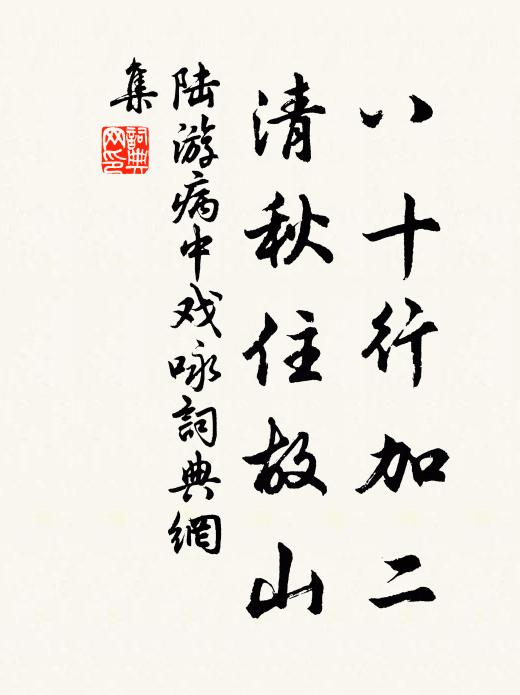 八十行加二
清秋住故山
陆游病中戏咏詞典網
集
詞典
网印